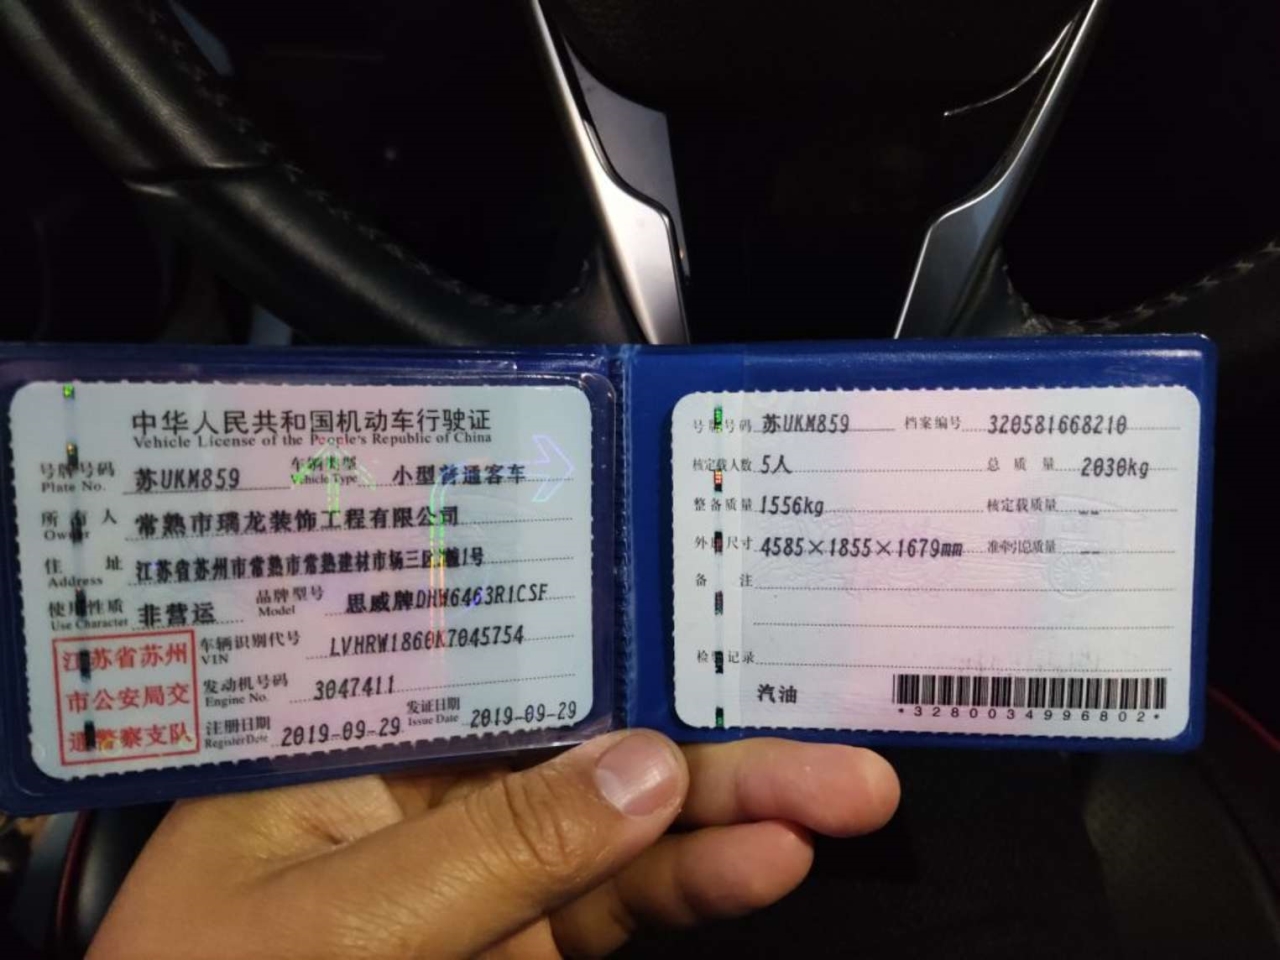 中华人民共和国机动车行驶证
Vehicle License of the People's Republic of China
号牌号码 苏UKM859 车辆类型 小型普通客车
Plate No. Vehicle Type
所有人 常熟市瑀龙装饰工程有限公司
Owner
住址 江苏省苏州市常熟市常熟建材市场三区 1号
Address
使用性质 非营运 品牌型号 思威牌DHW6463R1CSF
Use Character Model
江苏省苏州市公安局交通警察支队
车辆识别代号 LVHRW1860K7045754
VIN
发动机号码 3047411
Engine No.
注册日期 2019-09-29 发证日期 2019-09-29
Register Date Issue Date
号牌号码 苏UKM859 档案编号 320581668210
核定载人数 5人 总质量 2030kg
整备质量 1556kg 核定载质量 --
外廓尺寸 4585×1855×1679mm 准牵引总质量 --
备注
检验记录
汽油
*3280034996802*